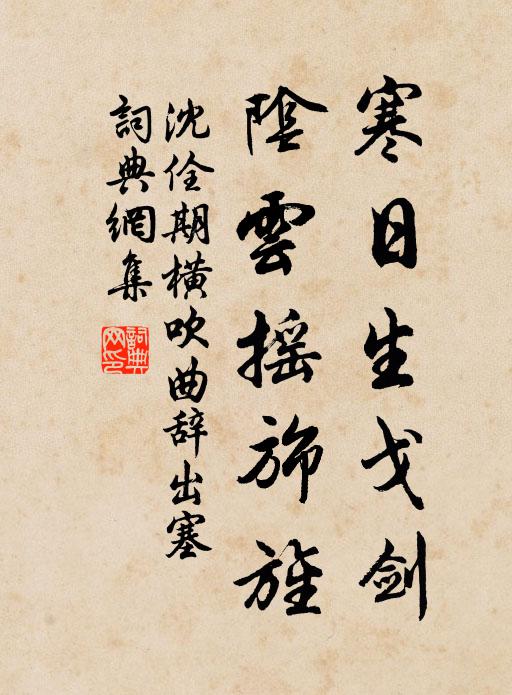 寒日生戈剑
陰雲摇旆旌
沈佺期橫吹曲辞出塞
詞典網集
詞典網印